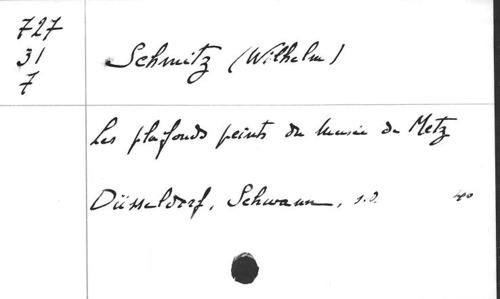 727
31
7
Schmitz (Wilhelm)
Les plafonds peints du Musée de Metz
Düsseldorf, Schwann, s.d. 4o